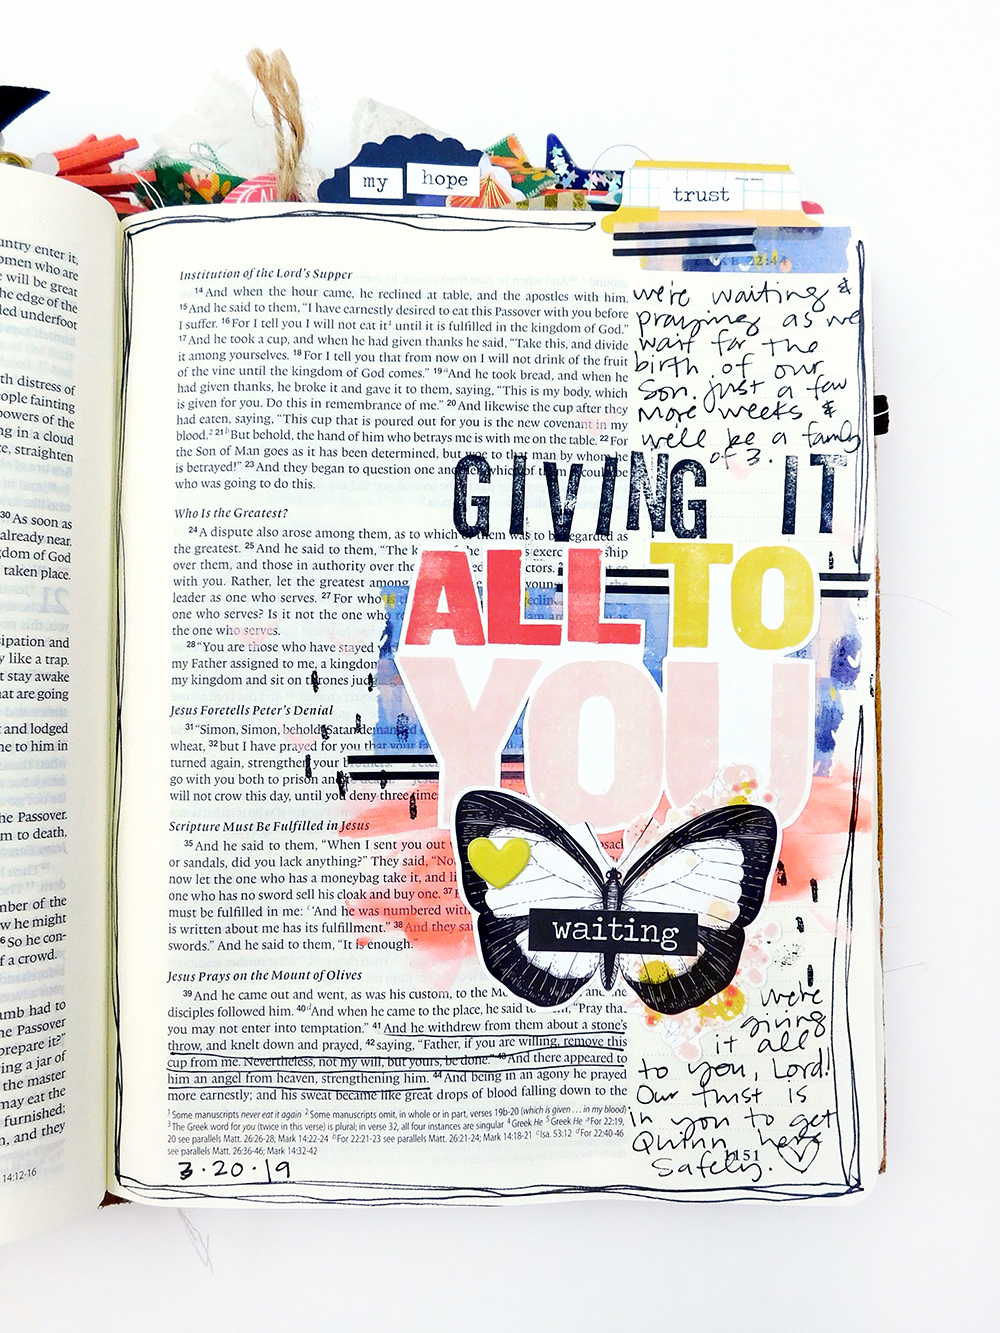 my hope
trust
LUKE 22:44
untry enter it,
omen who are
will be great
he edge of the
led underfoot
th distress of
ople fainting
powers of the
ng in a cloud
te, straighten
30 As soon as
already near.
gdom of God
taken place.
21
sipation and
y like a trap.
t stay awake
hat are going
t and lodged
me to him in
he Passover.
m to death,
mber of the
w he might
6 So he con-
f a crowd.
umb had to
e Passover
prepare it?"
ring a jar of
the master
may eat the
furnished;
n, and they
14:12-16
Institution of the Lord's Supper
14 And when the hour came, he reclined at table, and the apostles with him.
15 And he said to them, "I have earnestly desired to eat this Passover with you before
I suffer. 16 For I tell you I will not eat it until it is fulfilled in the kingdom of God."
17 And he took a cup, and when he had given thanks he said, "Take this, and divide
it among yourselves. 18 For I tell you that from now on I will not drink of the fruit
of the vine until the kingdom of God comes." 19 And he took bread, and when he
had given thanks, he broke it and gave it to them, saying, "This is my body, which
is given for you. Do this in remembrance of me." 20 And likewise the cup after they
had eaten, saying, "This cup that is poured out for you is the new covenant in my
blood. 21 But behold, the hand of him who betrays me is with me on the table. 22 For
the Son of Man goes as it has been determined, but woe to that man by whom he
is betrayed!" 23 And they began to question one another, which of them it could be
who was going to do this.
we're waiting &
praying as we
wait for the
birth of our
son. just a few
more weeks &
we'll be a family
of 3.
GIVING IT
ALL TO
YOU
waiting
Who Is the Greatest?
24 A dispute also arose among them, as to which of them was to be regarded as
the greatest. 25 And he said to them, "The k of the exerc ship
over them, and those in authority over the ed ctors.
with you. Rather, let the greatest among youn
leader as one who serves. 27 For who is t reclin
one who serves? Is it not the one who r am as
the one who serves.
28 "You are those who have stayed w
my Father assigned to me, a kingdom
my kingdom and sit on thrones judg
Jesus Foretells Peter's Denial
31 "Simon, Simon, behold, Satan demanded
wheat, 32 but I have prayed for you that your fa
turned again, strengthen your brothers." Peter
go with you both to prison and to death." Jes
will not crow this day, until you deny three time
Scripture Must Be Fulfilled in Jesus
35 And he said to them, "When I sent you out sack
or sandals, did you lack anything?" They said, "No
now let the one who has a moneybag take it, and li
one who has no sword sell his cloak and buy one. 37
must be fulfilled in me: 'And he was numbered with
is written about me has its fulfillment." 38 And they sai
swords." And he said to them, "It is enough."
Jesus Prays on the Mount of Olives
39 And he came out and went, as was his custom, to the Mo and the
disciples followed him. 40 And when he came to the place, he said to them, "Pray that
you may not enter into temptation." 41 And he withdrew from them about a stone's
throw, and knelt down and prayed, 42 saying, "Father, if you are willing, remove this
cup from me. Nevertheless, not my will, but yours, be done." 43 And there appeared to
him an angel from heaven, strengthening him. 44 And being in an agony he prayed
more earnestly; and his sweat became like great drops of blood falling down to the
we're
giving
it all
to you, Lord!
Our trust is
in you to get
Quinn here
Safely.
1 Some manuscripts never eat it again 2 Some manuscripts omit, in whole or in part, verses 19b-20 (which is given . . . in my blood)
3 The Greek word for you (twice in this verse) is plural; in verse 32, all four instances are singular 4 Greek He 5 Greek He For 22:19,
20 see parallels Matt. 26:26-28; Mark 14:22-24 For 22:21-23 see parallels Matt. 26:21-24; Mark 14:18-21 Isa. 53:12 For 22:40-46
see parallels Matt. 26:36-46; Mark 14:32-42
1151
3.20.19